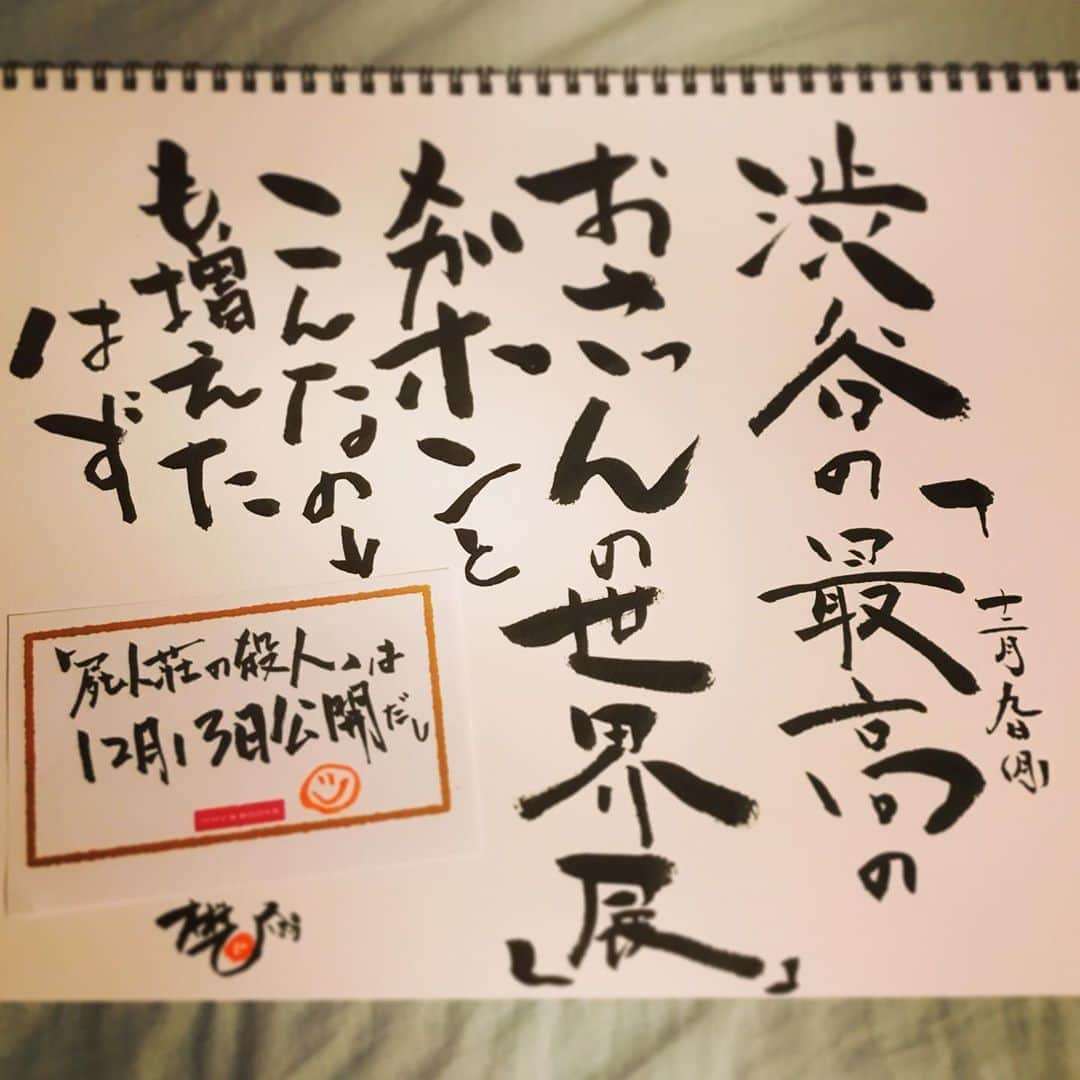 十二月九日(月)
渋谷の最高の
おっさんの世界展」
メガホンと
こんなの↓
も増えた
はず
「屍人荘の殺人」は
12月13日公開だし